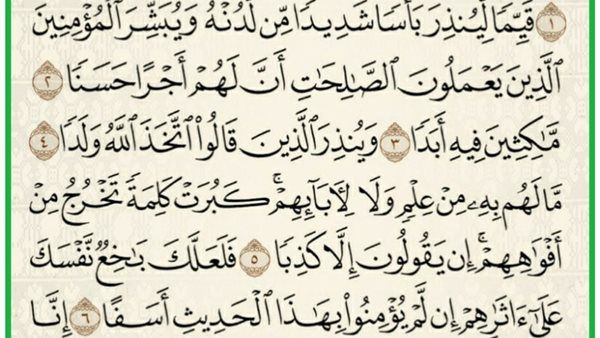 ١ قَيِّمًا لِّيُنذِرَ بَأْسًا شَدِيدًا مِّن لَّدُنْهُ وَيُبَشِّرَ ٱلْمُؤْمِنِينَ
ٱلَّذِينَ يَعْمَلُونَ ٱلصَّـٰلِحَـٰتِ أَنَّ لَهُمْ أَجْرًا حَسَنًا ٢
مَّـٰكِثِينَ فِيهِ أَبَدًا ٣ وَيُنذِرَ ٱلَّذِينَ قَالُوا۟ ٱتَّخَذَ ٱللَّهُ وَلَدًا ٤
مَّا لَهُم بِهِۦ مِنْ عِلْمٍ وَلَا لِـَٔابَآئِهِمْ ۚ كَبُرَتْ كَلِمَةً تَخْرُجُ مِنْ
أَفْوَٰهِهِمْ ۚ إِن يَقُولُونَ إِلَّا كَذِبًا ٥ فَلَعَلَّكَ بَـٰخِعٌ نَّفْسَكَ
عَلَىٰٓ ءَاثَـٰرِهِمْ إِن لَّمْ يُؤْمِنُوا۟ بِهَـٰذَا ٱلْحَدِيثِ أَسَفًا ٦ إِنَّا